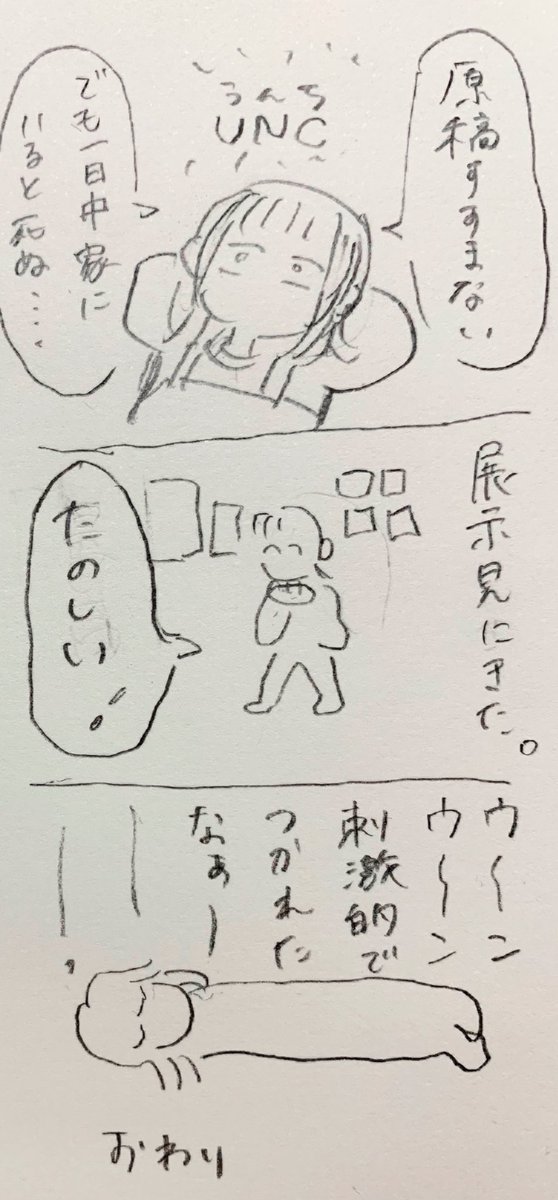 原稿すすまない
うんち
UNC
でも一日中家に
いると死ぬ....
展示見にきた。
たのしい
ウ〜ン
ウ〜ン
刺激的で
つかれた
なぁー
おわり